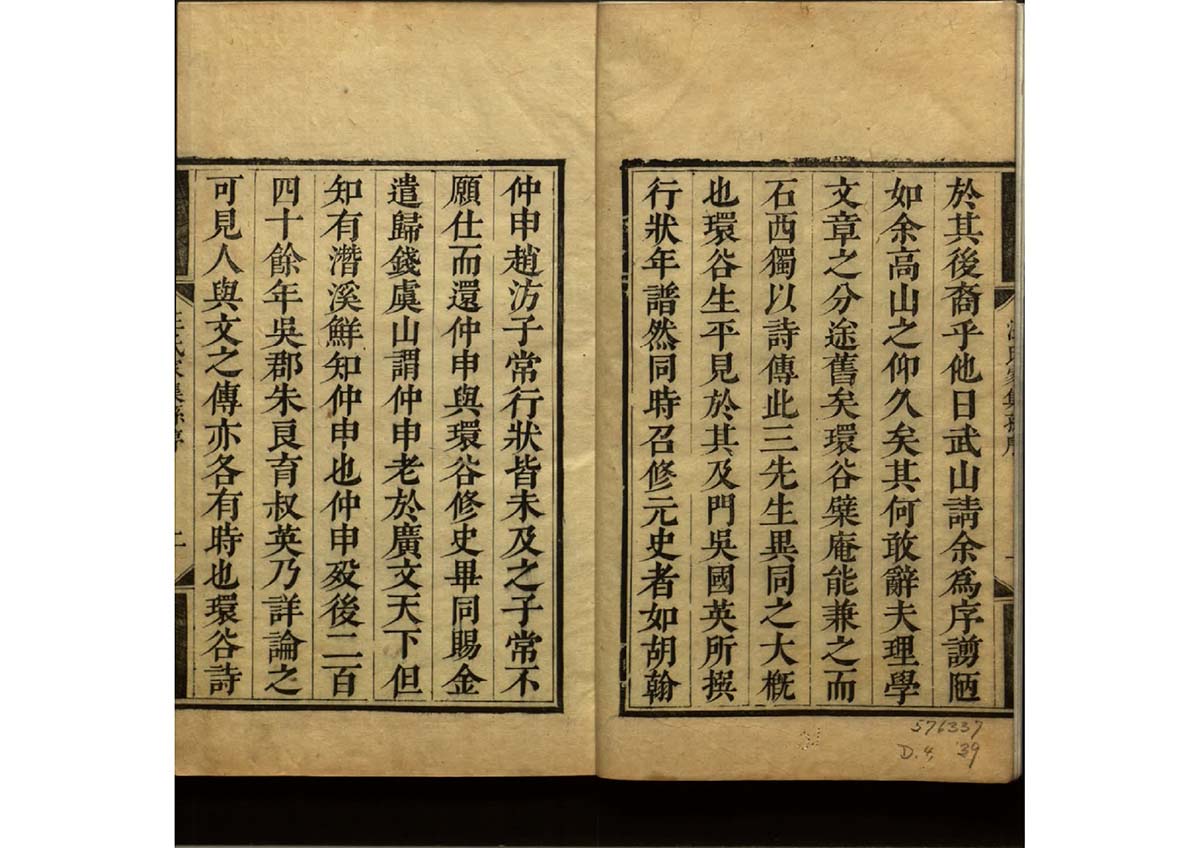 於其後裔乎他日武山請余爲序謭陋
如余高山之仰久矣其何敢辭夫理學
文章之分途舊矣環谷檗庵能兼之而
石西獨以詩傳此三先生異同之大槪
也環谷生平見於其及門吳國英所撰
行狀年譜然同時召修元史者如胡翰
仲申趙汸子常行狀皆未及之子常不
願仕而還仲申與環谷修史畢同賜金
遣歸錢虞山謂仲申老於廣文天下但
知有潛溪鮮知仲申也仲申歿後二百
四十餘年吳郡朱良育叔英乃詳論之
可見人與文之傳亦各有時也環谷詩
二
576337
D. 4, '39